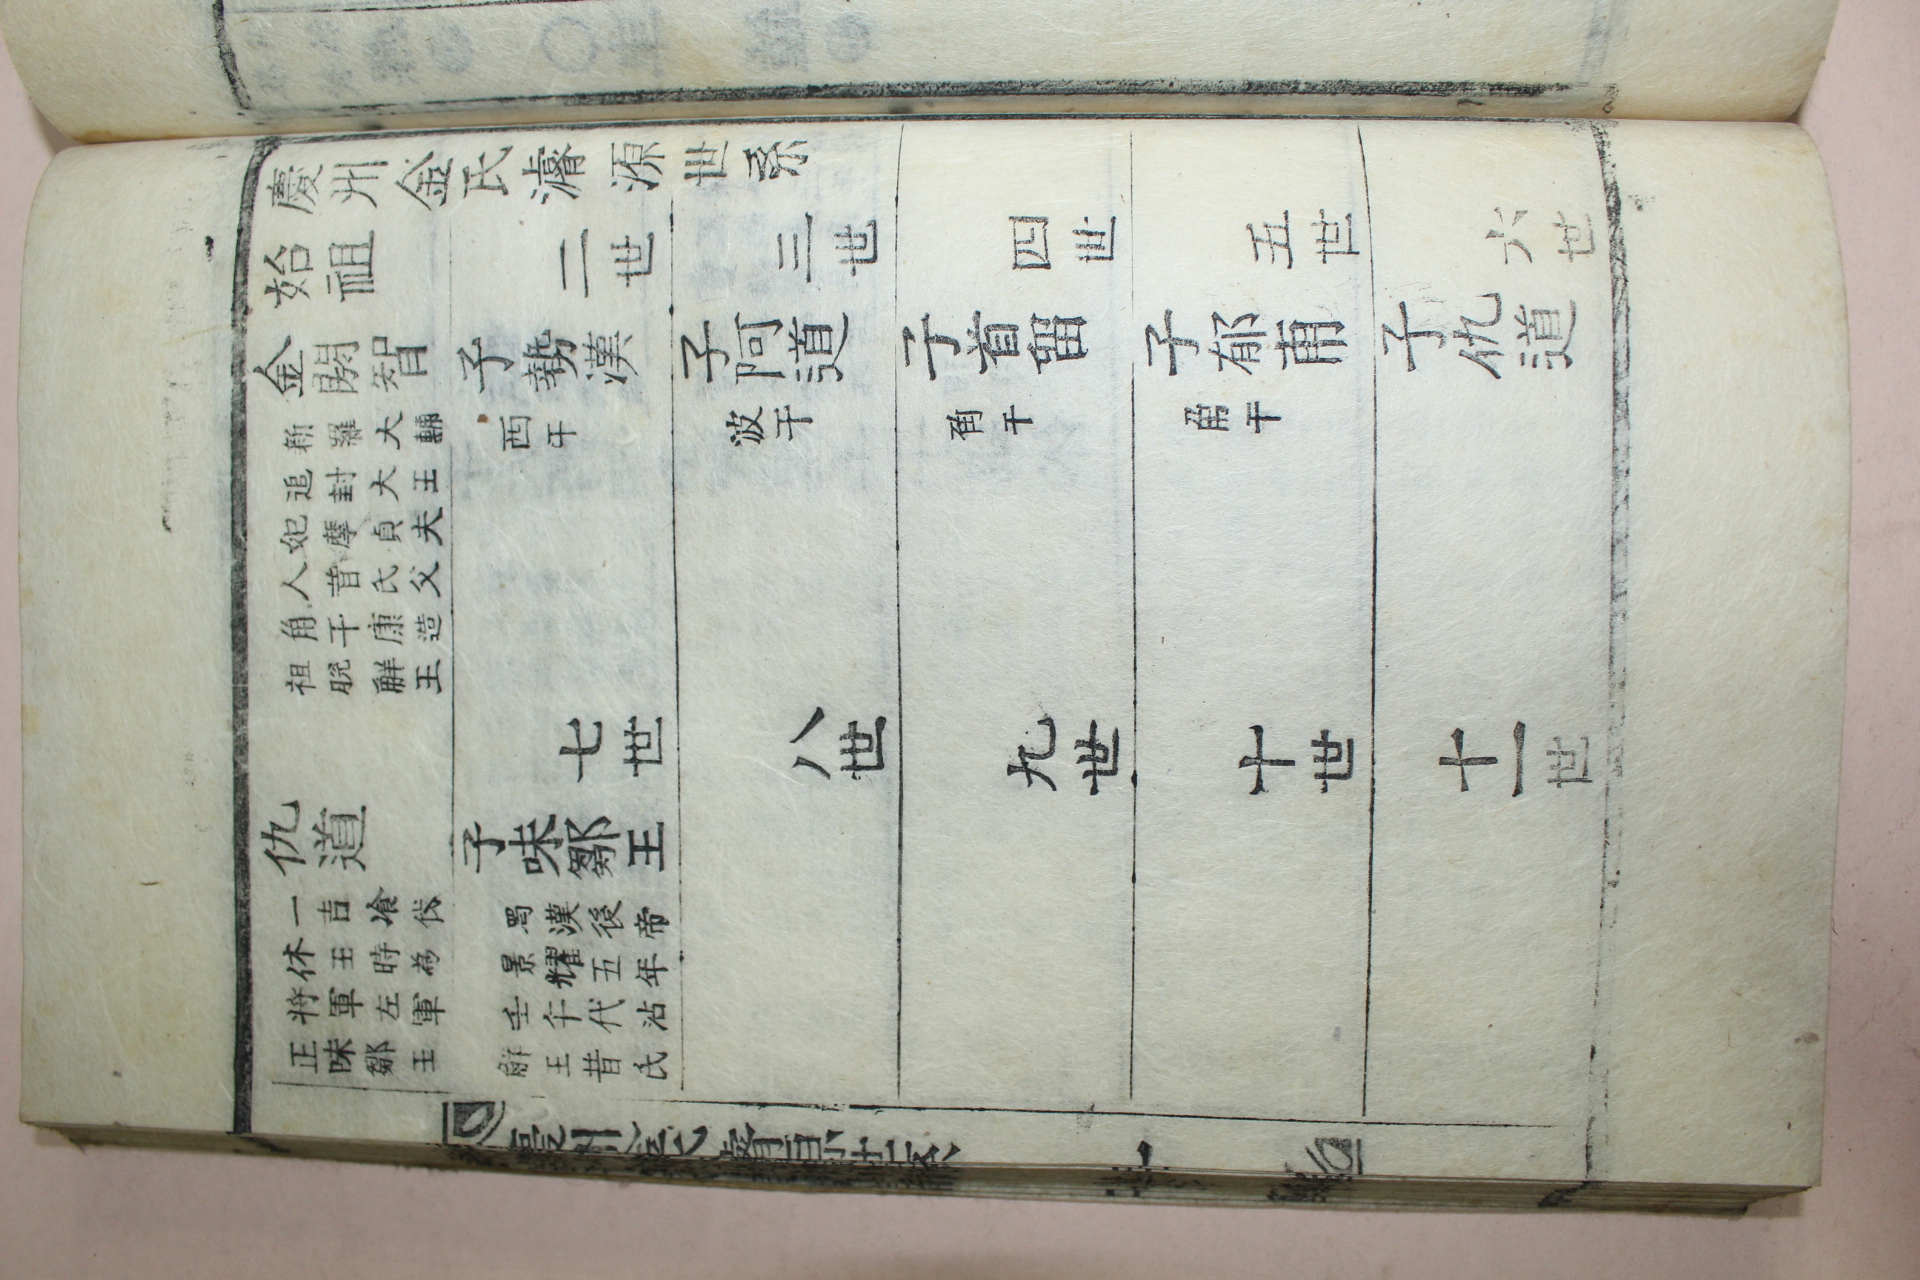 慶州金氏濬源世系
始祖 二世 三世 四世 五世 六世
金閼智 子勢漢 子阿道 子首留 子郁甫 子仇道
新羅大輔 西午 波干 角干 角干
追封大王
妃摩貞夫
人昔氏父
角干康造
祖脫解王
七世 八世 九世 十世 十一世
仇道 子味鄒王
一吉飡伐 蜀漢後帝
休王時為 景耀五年
將軍左軍 壬午代沾
正味鄒王 解王昔氏
慶州金氏濬源世系 一